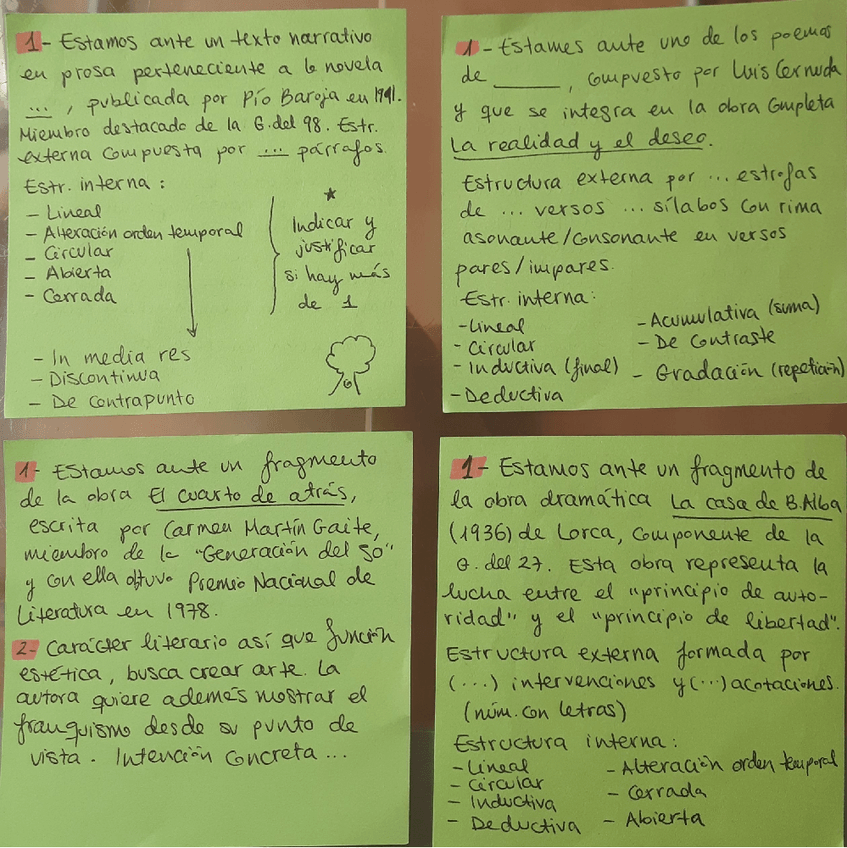 1- Estamos ante un texto narrativo
en prosa perteneciente a la novela
..., publicada por Pío Baroja en 1911.
Miembro destacado de la G. del 98. Estr.
externa compuesta por ... párrafos
Estr. interna:
- Lineal
- Alteración orden temporal
- Circular
- Abierta
- Cerrada
* Indicar y
justificar
si hay más
de 1
- In media res
- Discontinua
- De contrapunto
1- Estames ante uno de los poemas
de ______, compuesto por Luis Cernuda
y que se integra en la obra completa
La realidad y el deseo.
Estructura externa por ... estrofas
de ... versos ... sílabos con rima
asonante/consonante en versos
pares/impares.
Estr. interna:
- Lineal
- Circular
- Inductiva (final)
- Deductiva
- Acumulativa (suma)
- De contraste
- Gradación (repetición)
1- Estamos ante un fragmento
de la obra El cuarto de atrás,
escrita por Carmen Martín Gaite,
miembro de la "Generación del 50"
y con ella obtuvo Premio Nacional de
Literatura en 1978.
2- Carácter literario así que función
estética, busca crear arte. La
autora quiere además mostrar el
franquismo desde su punto de
vista. Intención concreta ...
1- Estamos ante un fragmento de
la obra dramática La casa de B.Alba
(1936) de Lorca, componente de la
G. del 27. Esta obra representa la
lucha entre el "principio de auto-
ridad" y el "principio de libertad".
Estructura externa formada por
(...) intervenciones y (...) acotaciones.
(núm. con letras)
Estructura interna:
- Lineal
- Circular
- Inductiva
- Deductiva
- Alteración orden temporal
- Cerrada
- Abierta